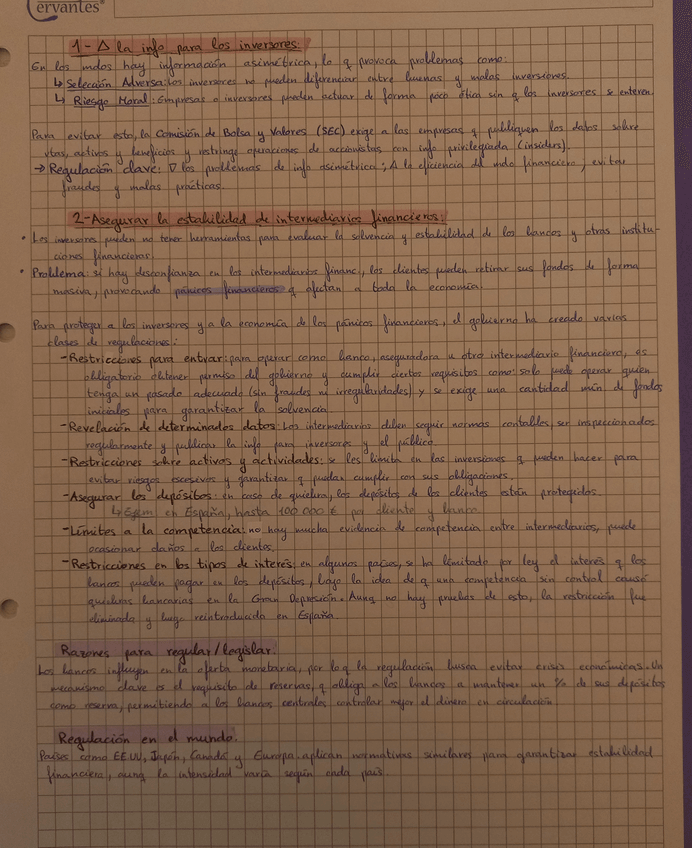 Cervantes
1- Δ la info para los inversores:
En los mdos hay información asimétrica, lo q provoca problemas como:
↳ Selección Adversa: los inversores no pueden diferenciar entre buenas y malas inversiones.
↳ Riesgo Moral: Empresas o inversores pueden actuar de forma poco ética sin q los inversores se enteren.
Para evitar esto, la Comisión de Bolsa y Valores (SEC) exige a las empresas q publiquen los datos sobre
vtas, activos y beneficios y restringe operaciones de accionistas con info privilegiada (insiders).
→ Regulación clave: ∇ los problemas de info asimétrica; Δ la eficiencia del mdo financiero; evitar
fraudes y malas prácticas.
2-Asegurar la estabilidad de intermediarios financieros:
• Los inversores pueden no tener herramientas para evaluar la solvencia y estabilidad de los bancos y otras institu-
ciones financieras.
• Problema: si hay desconfianza en los intermediarios financ., los clientes pueden retirar sus fondos de forma
masiva, provocando pánicos financieros q afectan a toda la economía.
Para proteger a los inversores y a la economía de los pánicos financieros, el gobierno ha creado varias
clases de regulaciones:
-Restricciones para entrar: para operar como banco, aseguradora u otro intermediario financiero, es
obligatorio obtener permiso del gobierno y cumplir ciertos requisitos como: solo puede operar quien
tenga un pasado adecuado (sin fraudes ni irregularidades) y se exige una cantidad mín de fondos
iniciales para garantizar la solvencia.
-Revelación de determinados datos: Los intermediarios deben seguir normas contables, ser inspeccionados
regularmente y publicar la info para inversores y el público.
-Restricciones sobre activos y actividades: se les limita en las inversiones q pueden hacer para
evitar riesgos excesivos y garantizar q puedan cumplir con sus obligaciones.
-Asegurar los depósitos: en caso de quiebra, los depósitos de los clientes están protegidos.
↳ Ejem: en España, hasta 100.000 € por cliente y banco.
-Límites a la competencia: no hay mucha evidencia de competencia entre intermediarios, puede
ocasionar daños a los clientes.
-Restricciones en los tipos de interés: en algunos países, se ha limitado por ley el interés q los
bancos pueden pagar en los depósitos, bajo la idea de q una competencia sin control causó
quiebras bancarias en la Gran Depresión. Aunq no hay pruebas de esto, la restricción fue
eliminada y luego reintroducida en España.
Razones para regular/legislar.
Los bancos influyen en la oferta monetaria, por lo q la regulación busca evitar crisis económicas. Un
mecanismo clave es el requisito de reservas, q obliga a los bancos a mantener un % de sus depósitos
como reserva, permitiendo a los bancos centrales controlar mejor el dinero en circulación
Regulación en el mundo.
Países como EEUU, Japón, Canadá y Europa aplican normativas similares para garantizar estabilidad
financiera, aunq la intensidad varía según cada país.